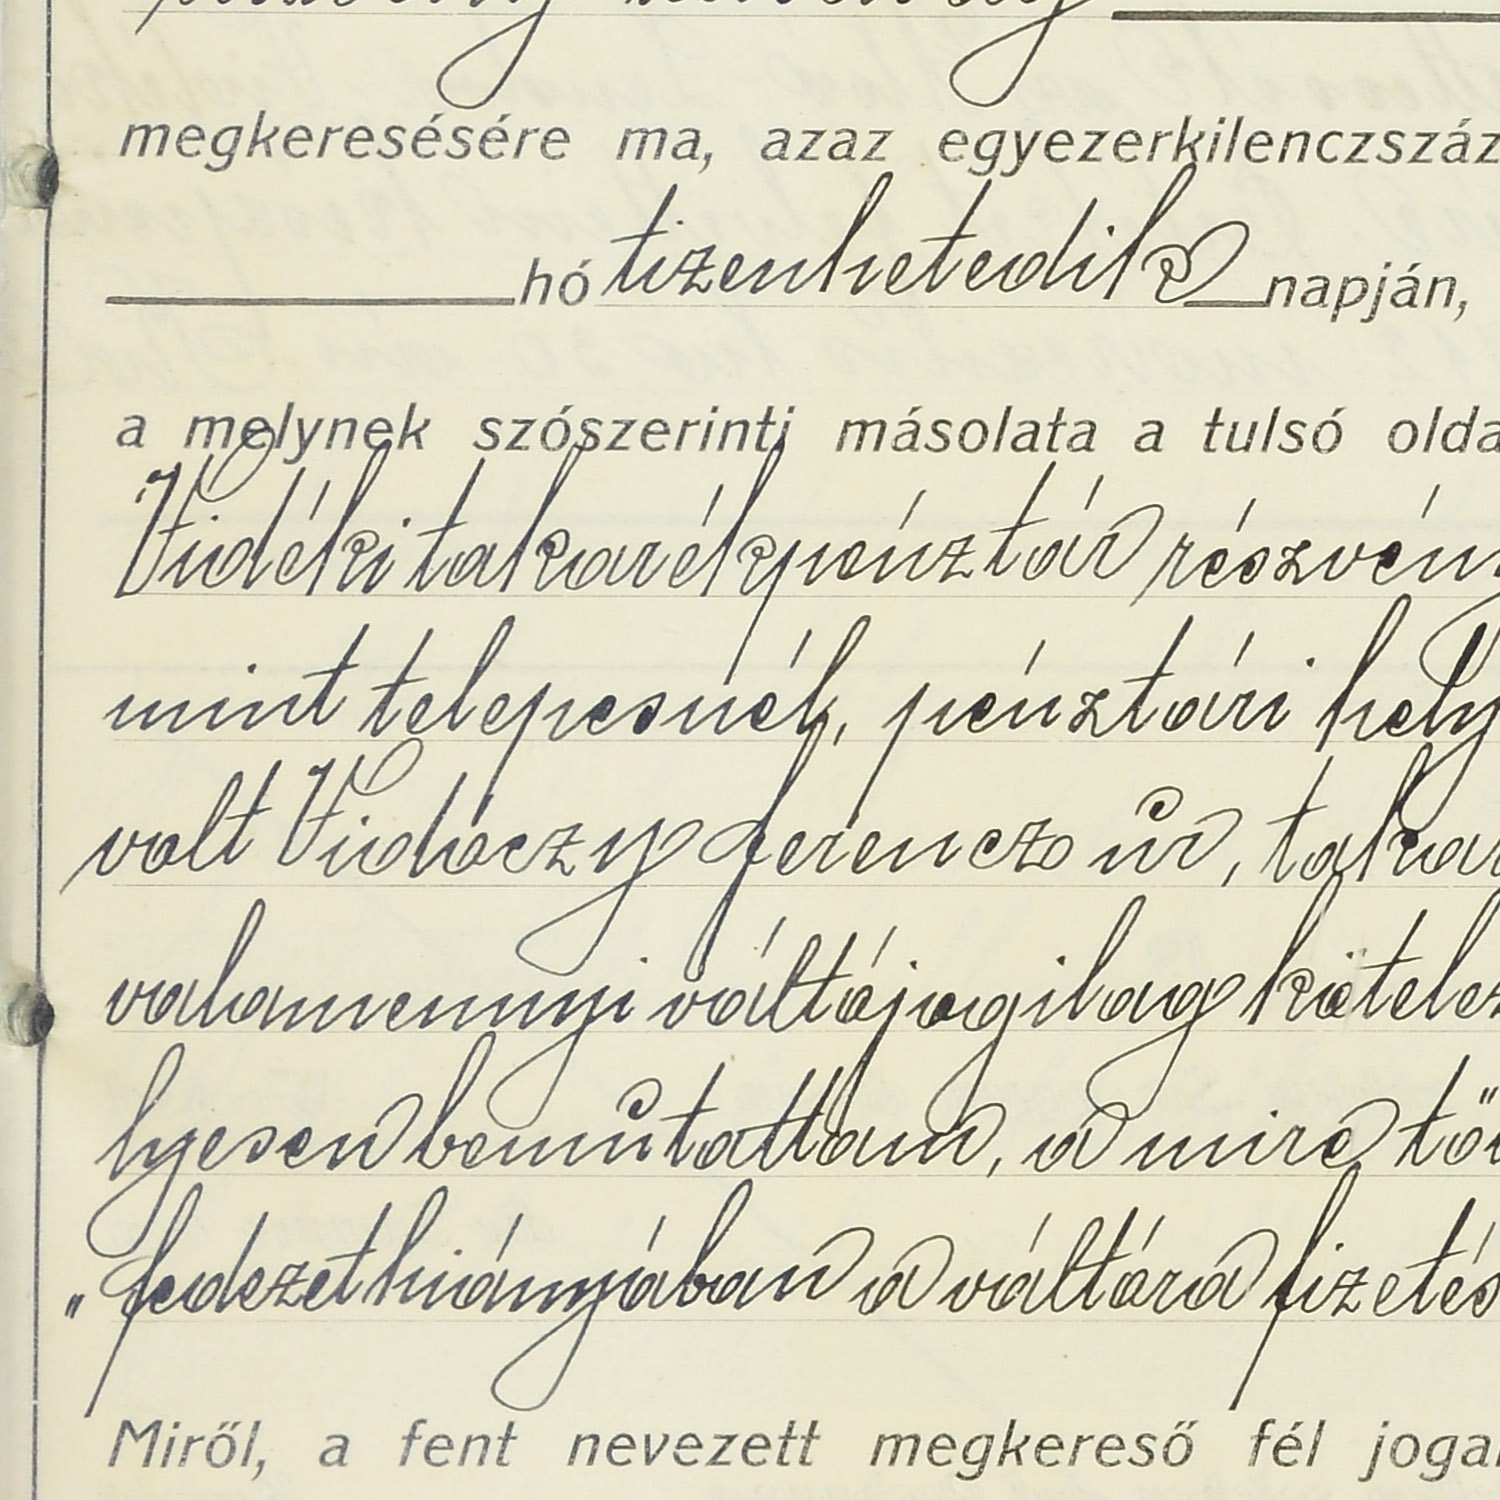 megkeresésére ma, azaz egyezerkilenczszáz
hó tizenhetedik napján,
a melynek szószerinti másolata a tulsó olda
Vidéki takarékpénztár részvén
mint telepesnél, pénztári hely
volt Vidóczy Ferencz úr, takar
valamennyi váltójogilag kötelez
lyesen bemutattam, a mire tőr
"fedezet hiányában a váltóra fizetés
Miről, a fent nevezett megkereső fél jogai